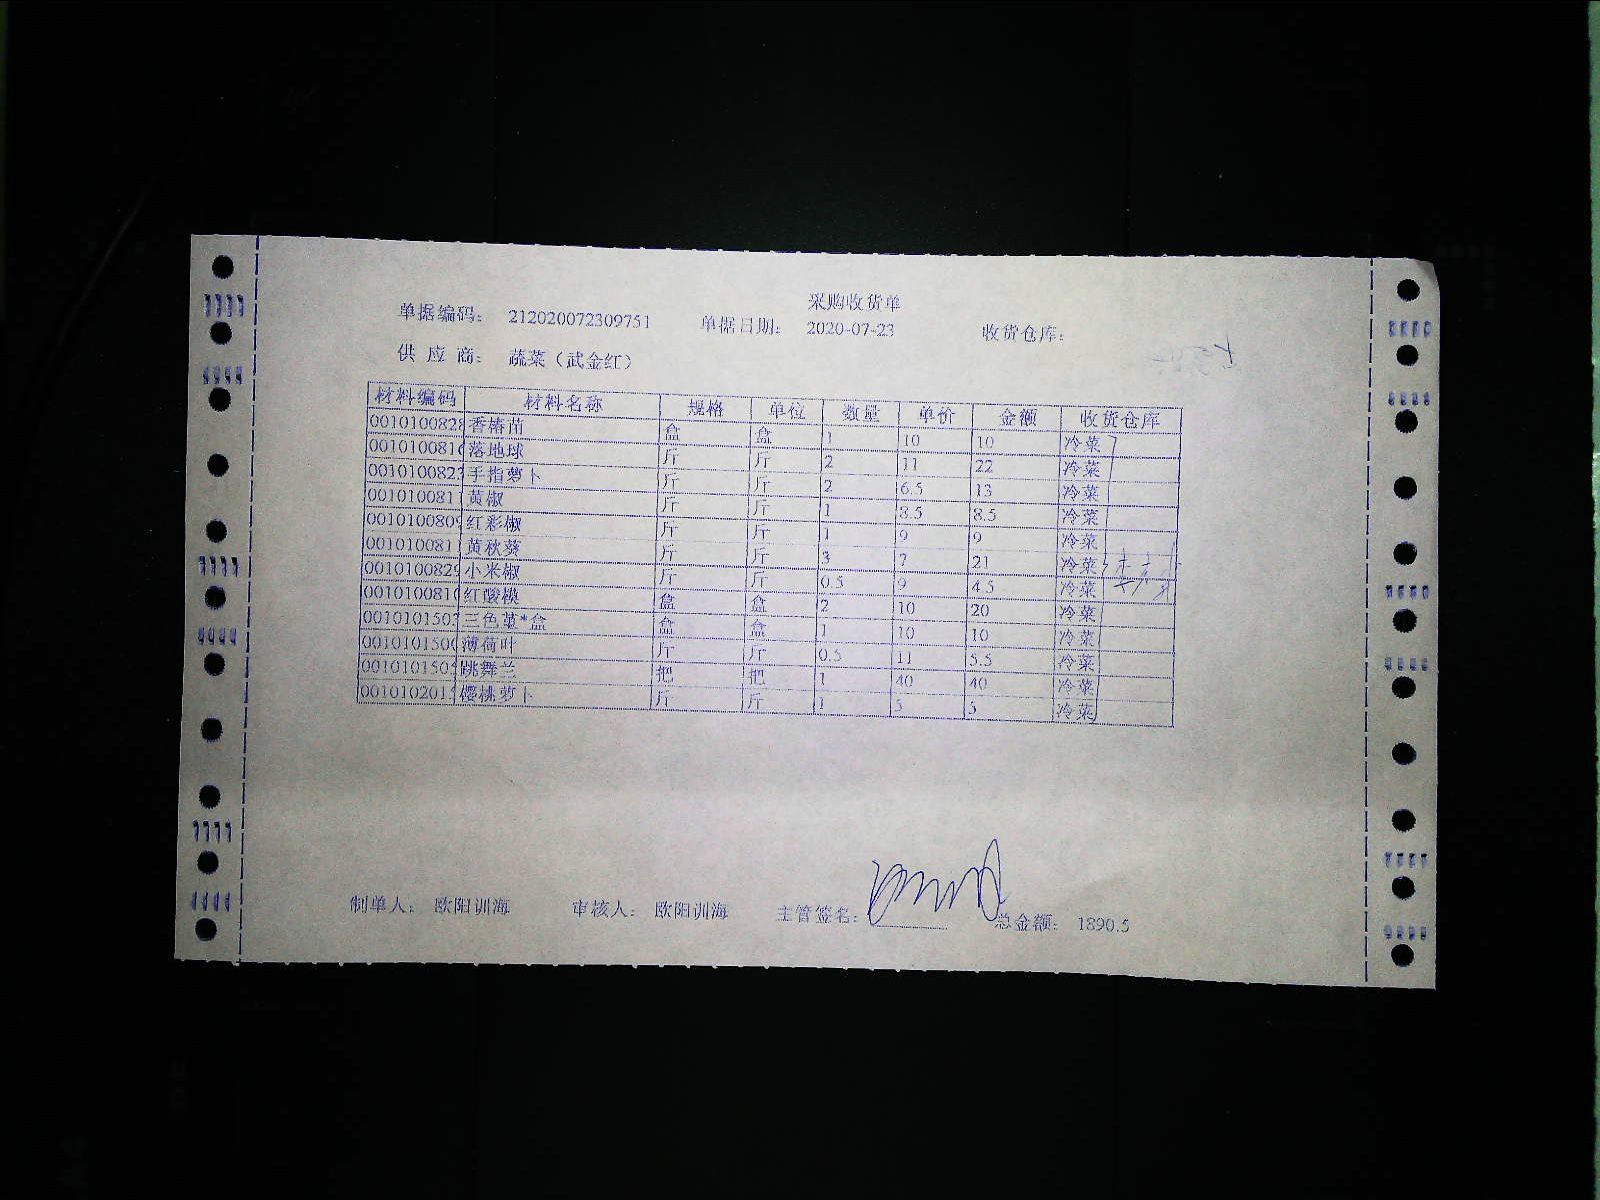 采购收货单
单据编码： 212020072309751 单据日期： 2020-07-23 收货仓库：
供 应 商： 蔬菜（武金红）
材料编码 材料名称 规格 单位 数量 单价 金额 收货仓库
0010100828 香椿苗 盒 盒 1 10 10 冷菜
001010081 落地球 斤 斤 2 11 22 冷菜
001010082 手指萝卜 斤 斤 2 6.5 13 冷菜
001010081 黄椒 斤 斤 1 8.5 8.5 冷菜
0010100809 红彩椒 斤 斤 1 9 9 冷菜
001010081 黄秋葵 斤 斤 3 7 21 冷菜
0010100829 小米椒 斤 斤 0.5 9 4.5 冷菜
0010100810 红酸模 盒 盒 2 10 20 冷菜
001010150 三色堇*盒 盒 盒 1 10 10 冷菜
0010101500 薄荷叶 斤 斤 0.5 11 5.5 冷菜
001010150 跳舞兰 把 把 1 40 40 冷菜
001010201 樱桃萝卜 斤 斤 1 5 5 冷菜
制单人： 欧阳训海 审核人： 欧阳训海 主管签名： 总金额： 1890.5